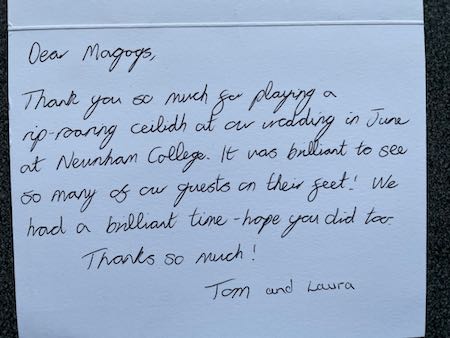 Dear Magogs,
Thank you so much for playing a
rip-roaring ceilidh at our wedding in June
at Newnham College. It was brilliant to see
so many of our guests on their feet! We
had a brilliant time - hope you did too.
Thanks so much!
Tom and Laura